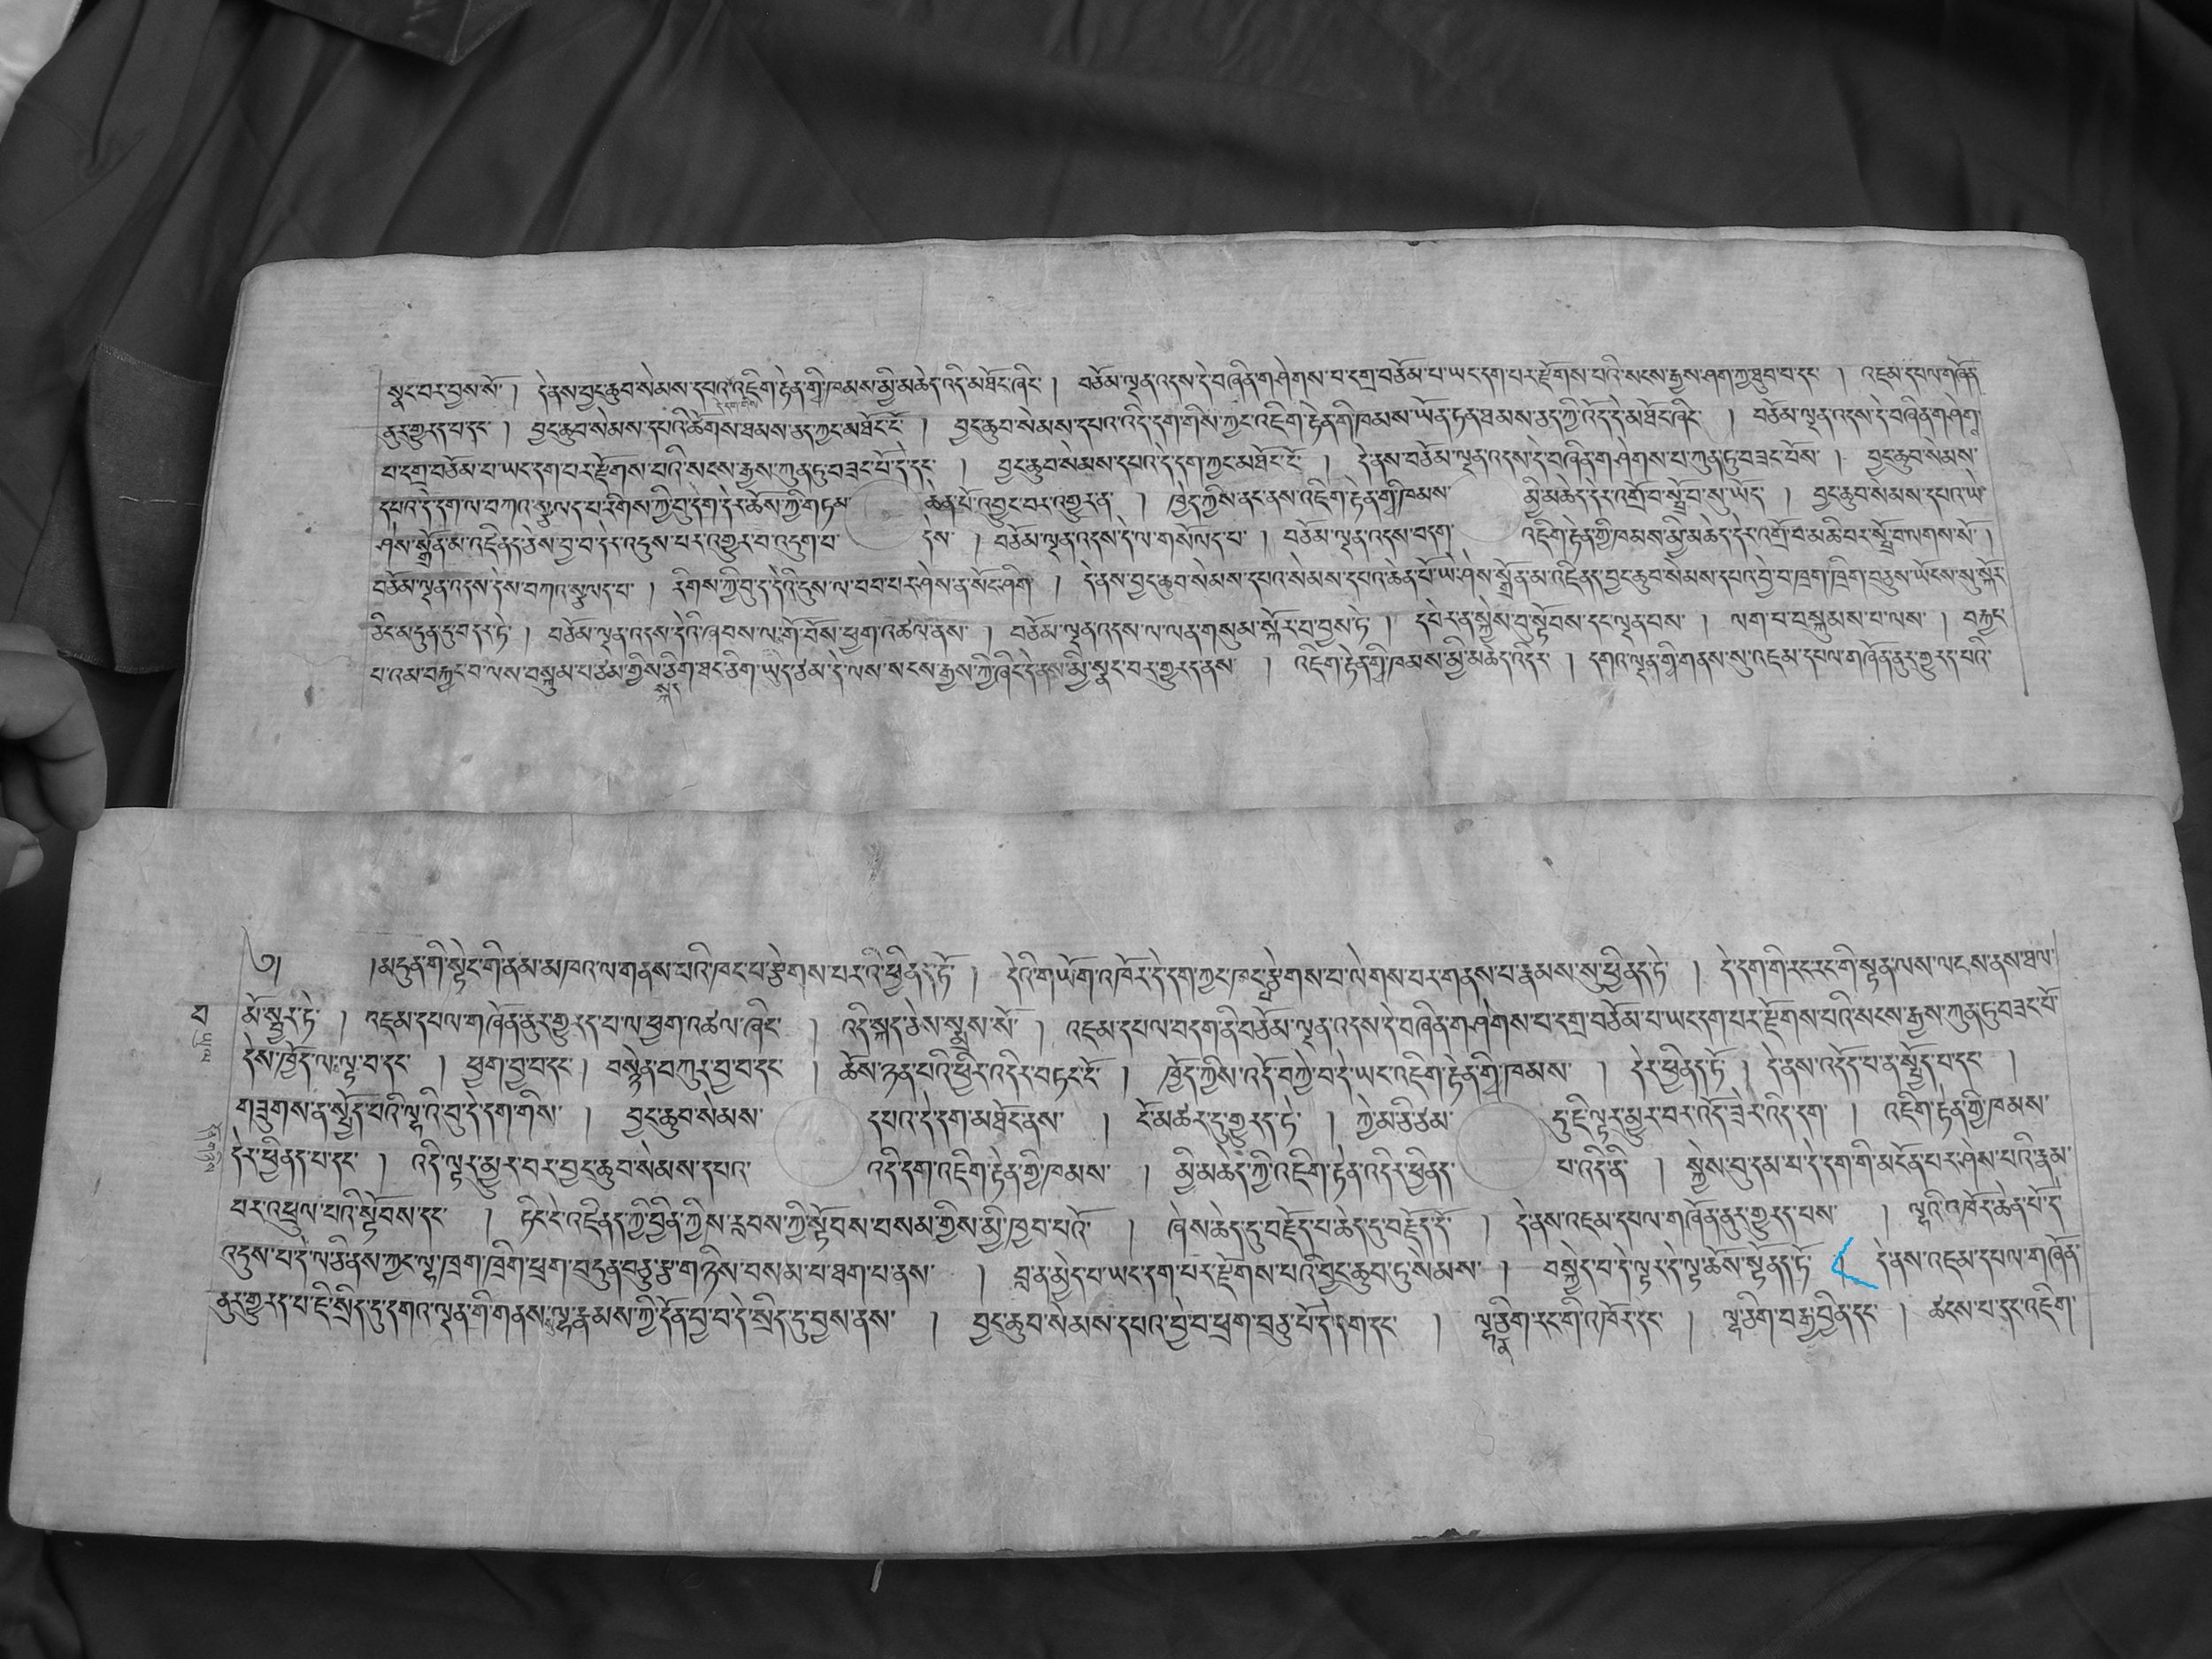 སྣང་བར་བྱས་སོ་ །  དེ་ནས་བྱང་ཆུབ་སེམས་དཔའ་འཇིག་རྟེན་གྱི་ཁམས་མྱི་མཆེད་འདི་མཐོང་ཞིང་ །  བཅོམ་ལྡན་འདས་དེ་བཞིན་གཤེགས་པ་དགྲ་བཅོམ་པ་ཡང་དག་པར་རྫོགས་པའི་སངས་རྒྱས་ཤག་ཀྱ་ཐུབ་པ་དང་ །  འཇམ་དཔལ་གཞོན་
ནུར་གྱུརད་པ་དང་ །  བྱང་ཆུབ་སེམས་དཔའི་ཚོགས་ཐམས་ཅད་ཀྱང་མཐོང་ངོ་ །  བྱང་ཆུབ་སེམས་དཔའ་འདི་དག་གིས་ཀྱང་འཇིག་རྟེན་གི་ཁམས་ཡོན་ཏན་ཐམས་ཅད་ཀྱི་འོད་དེ་མཐོང་ཞིང་ །  བཅོམ་ལྡན་འདས་དེ་བཞིན་གཤེགས་
པ་དགྲ་བཅོམ་པ་ཡང་དག་པར་རྫོགས་པའི་སངས་རྒྱས་ཀུན་ཏུ་བཟང་པོ་དེ་དང་ །  བྱང་ཆུབ་སེམས་དཔའ་དེ་དག་ཀྱང་མཐོང་ངོ་ །  དེ་ནས་བཅོམ་ལྡན་འདས་དེ་བཞིན་གཤེགས་པ་ཀུན་ཏུ་བཟང་པོས་ །  བྱང་ཆུབ་སེམས་
དཔའ་དེ་དག་ལ་བཀའ་སྩལད་པ་རིགས་ཀྱི་བུ་དེག་དེར་ཆོས་ཀྱི་གཏམ་ ཆེན་པོ་འབྱུང་བར་འགྱུར་ན་ །  ཁྱེད་ཀྱིས་ནང་ནས་འཇིག་རྟེན་གྱི་ཁམས་ མྱི་མཆེད་དེར་འགྲོ་བ་སྤྲོ་བ་སུ་ཡོད་ །  བྱང་ཆུབ་སེམས་དཔའ་ཡེ་
ཤེས་སྒྲོན་མ་འཛིནད་ཅེས་བྱ་བ་དེར་འདུས་པར་འགྱུར་བ་འདུག་པ་ དེས་ །  བཅོམ་ལྡན་འདས་དེ་ལ་གསོལད་པ་ །  བཅོམ་ལྡན་འདས་བདག་ འཇིག་རྟེན་ཀྱི་ཁམས་མྱི་མཆེད་དེར་འགྲོ་བ་མ་ཆིབར་སྤྲོ་བ་ལགས་སོ་ །
བཅོམ་ལྡན་འདས་དེས་བཀའ་སྩལད་པ་ །  རིགས་ཀྱི་བུ་ད་དེའི་དུས་ལ་བབ་པར་ཤེས་ན་སོང་ཤིག་ །  དེ་ནས་བྱང་ཆུབ་སེམས་དཔའ་སེམས་དཔའ་ཆེན་པོ་ཡེ་ཤེས་སྒྲོན་མ་འཛིནད་བྱང་ཆུབ་སེམས་དཔའ་བྱེ་བ་ཁྲག་ཁྲིག་བརྒྱས་ཡོངས་སུ་སྐོར་
ཅིང་མདུན་དུ་བདར་ཏེ་ །  བཅོམ་ལྡན་འདས་དེའི་ཞབས་ལ་གོ་བོས་ཕྱག་འཚལ་ནས་ །  བཅོམ་ལྡན་འདས་ལ་ལན་གསུམ་སྐོར་བ་བྱས་ཏེ་ །  དཔེར་ན་སྐྱེས་བུ་སྟོབས་དང་ལྡན་བས་ །  ལག་པ་བསྐུམས་པ་ལས་ །  བརྐྱང་
པ་འམ་བརྐྱང་བ་ལས་བསྐུམ་པ་ཙམ་གྱིས་ཅིག་ཐང་ཅིག་ཡུད་ཙམ་དེ་ལས་སངས་རྒྱས་ཀྱི་ཞིང་དེ་ནས་མྱི་སྣང་བར་གྱུརད་ནས་ །  འཇིག་རྟེན་གྱི་ཁམས་མྱི་མཆེད་འདིར་ །  དགའ་ལྡན་གྱི་གནས་སུ་འཇམ་དཔལ་གཞོན་ནུར་གྱུརད་པའི་
༄། །མདུན་གི་སྟེང་གི་ནམ་མཁའ་ལ་གནས་པའི་ཁང་པ་རྩེགས་པར་འོ་ཕྱིནད་ཏོ་ །  དེའི་གཡོག་འཁོར་དེ་དག་ཀྱང་ཁང་རྩེགས་པ་ལེགས་པར་གནས་པ་རྣམས་སུ་ཕྱིནད་ཏེ་ །  དེ་དག་གི་རང་རང་གི་སྟན་ལས་ལངས་ནས་ཐལ་
མོ་སྦྱར་ཏེ་ །  འཇམ་དཔལ་གཞོན་ནུར་གྱུརད་པ་ལ་ཕྱག་འཚལ་ཞིང་ །  འདི་སྐད་ཅེས་སྨྲས་སོ་ །  འཇམ་དཔལ་བདག་ནི་བཅོམ་ལྡན་འདས་དེ་བཞིན་གཤེགས་པ་དགྲ་བཅོམ་པ་ཡང་དག་པར་རྫོགས་པའི་སངས་རྒྱས་ཀུན་ཏུ་བཟང་པོ་
དེས་ཁྱོད་ལ་ལྟ་བ་དང་ །  ཕྱག་བྱ་བ་དང་ །  བསྙེན་བཀུར་བྱ་བ་དང་ །  ཆོས་ཉན་པའི་ཕྱིར་འདིར་བཏང་ངོ་ །  ཁྱོད་ཀྱིས་འོད་བཀྱེ་བ་དེ་ཡང་འཇིག་རྟེན་གྱི་ཁམས་ །  དེར་ཕྱིནད་ཏོ་ །  དེ་ནས་འདོད་པ་ན་སྤྱོད་པ་དང་ །
གཟུགས་ན་སྤྱོད་པའི་ལྷའི་བུ་དེ་དག་གིས་ །  བྱང་ཆུབ་སེམས་ དཔའ་དེ་དག་མཐོང་ནས་ །  ངོ་མཚར་དུ་གྱུརད་ཏེ་ །  ཀྱེ་མ་ཅི་ཙམ་ དུ་ངི་ལྟར་མྱུར་བར་འོད་ཟེར་འདི་དག་ །  འཇིག་རྟེན་གྱི་ཁམས་
དེར་ཕྱིནད་པ་དང་ །  འདི་ལྟར་མྱུར་བར་བྱང་ཆུབ་སེམས་དཔའ་ འདི་དག་འཇིག་རྟེན་གྱི་ཁམས་ །  མྱི་མཆེད་ཀྱི་འཇིག་རྟེན་འདིར་ཕྱིནད་ པ་འདི་ནི་ །  སྐྱེས་བུ་དམ་པ་དེ་དག་གི་མངོན་པར་ཤེས་པའི་རྣམ་
པར་འཕྲུལ་པའི་སྟོབས་དང་ །  ཏིང་ངེ་འཛིནད་ཀྱི་བྱིན་ཀྱིས་རླབས་ཀྱི་སྟོབས་བསམ་གྱིས་མྱི་ཁྱབ་པའོ་ །  ཞེས་ཆེད་དུ་བརྗོད་པ་ཆེད་དུ་བརྗོད་དོ་ །  དེ་ནས་འཇམ་དཔལ་གཞོན་ནུར་གྱུརད་པས་ །  ལྷའི་འཁོར་ཆེན་པོ་དེ་
འདུས་པ་དེ་ལ་ཅི་ནས་ཀྱང་ལྷ་ཁྲག་ཁྲིག་ཕྲག་བདུན་བཅུ་རྩ་གཉིས་བསམ་པ་ཐག་པ་ནས་ །  བླ་ན་མྱེད་པ་ཡང་དག་པར་རྫོགས་པའི་བྱང་ཆུབ་ཏུ་སེམས་ །  བསྐྱེད་པ་དེ་ལྟར་དེ་ལྟ་ཆོས་སྟོནད་ཏོ་  དེ་ནས་འཇམ་དཔལ་གཞོན་
ནུར་གྱུརད་པ་ཇི་སྲིད་དུ་དགའ་ལྡན་གི་གནས་ལྷ་རྣམས་ཀྱི་དོན་བྱ་བ་དེ་སྲིད་དུ་བྱས་ནས་ །  བྱང་ཆུབ་སེམས་དཔའ་བྱེ་བ་ཕྲག་བརྒྱ་པོ་དེ་དག་དང་ །  ལྷ་རྣམས་རང་གི་འཁོར་དང་ །  ལྷ་ཅིག་བརྒྱ་བྱིན་དང་ །  ཚངས་པ་དང་འཇིག་